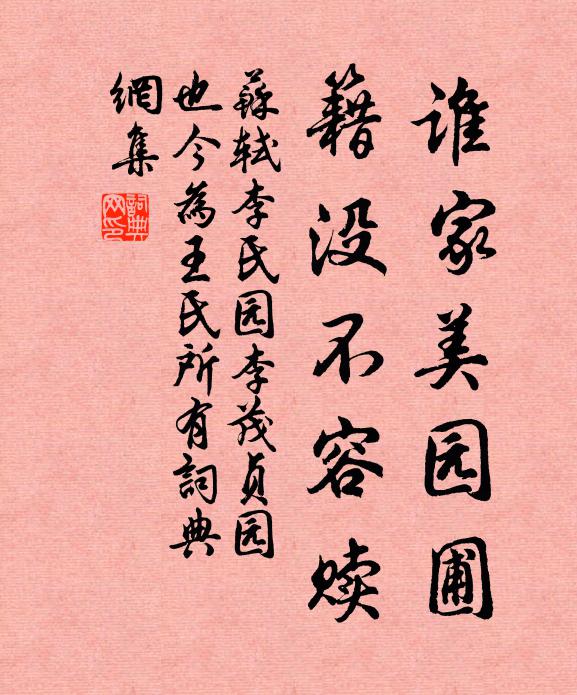 谁家美园圃
籍没不容赎
蘇轼李氏园李茂贞园
也今為王氏所有詞典
網集
詞典
网印